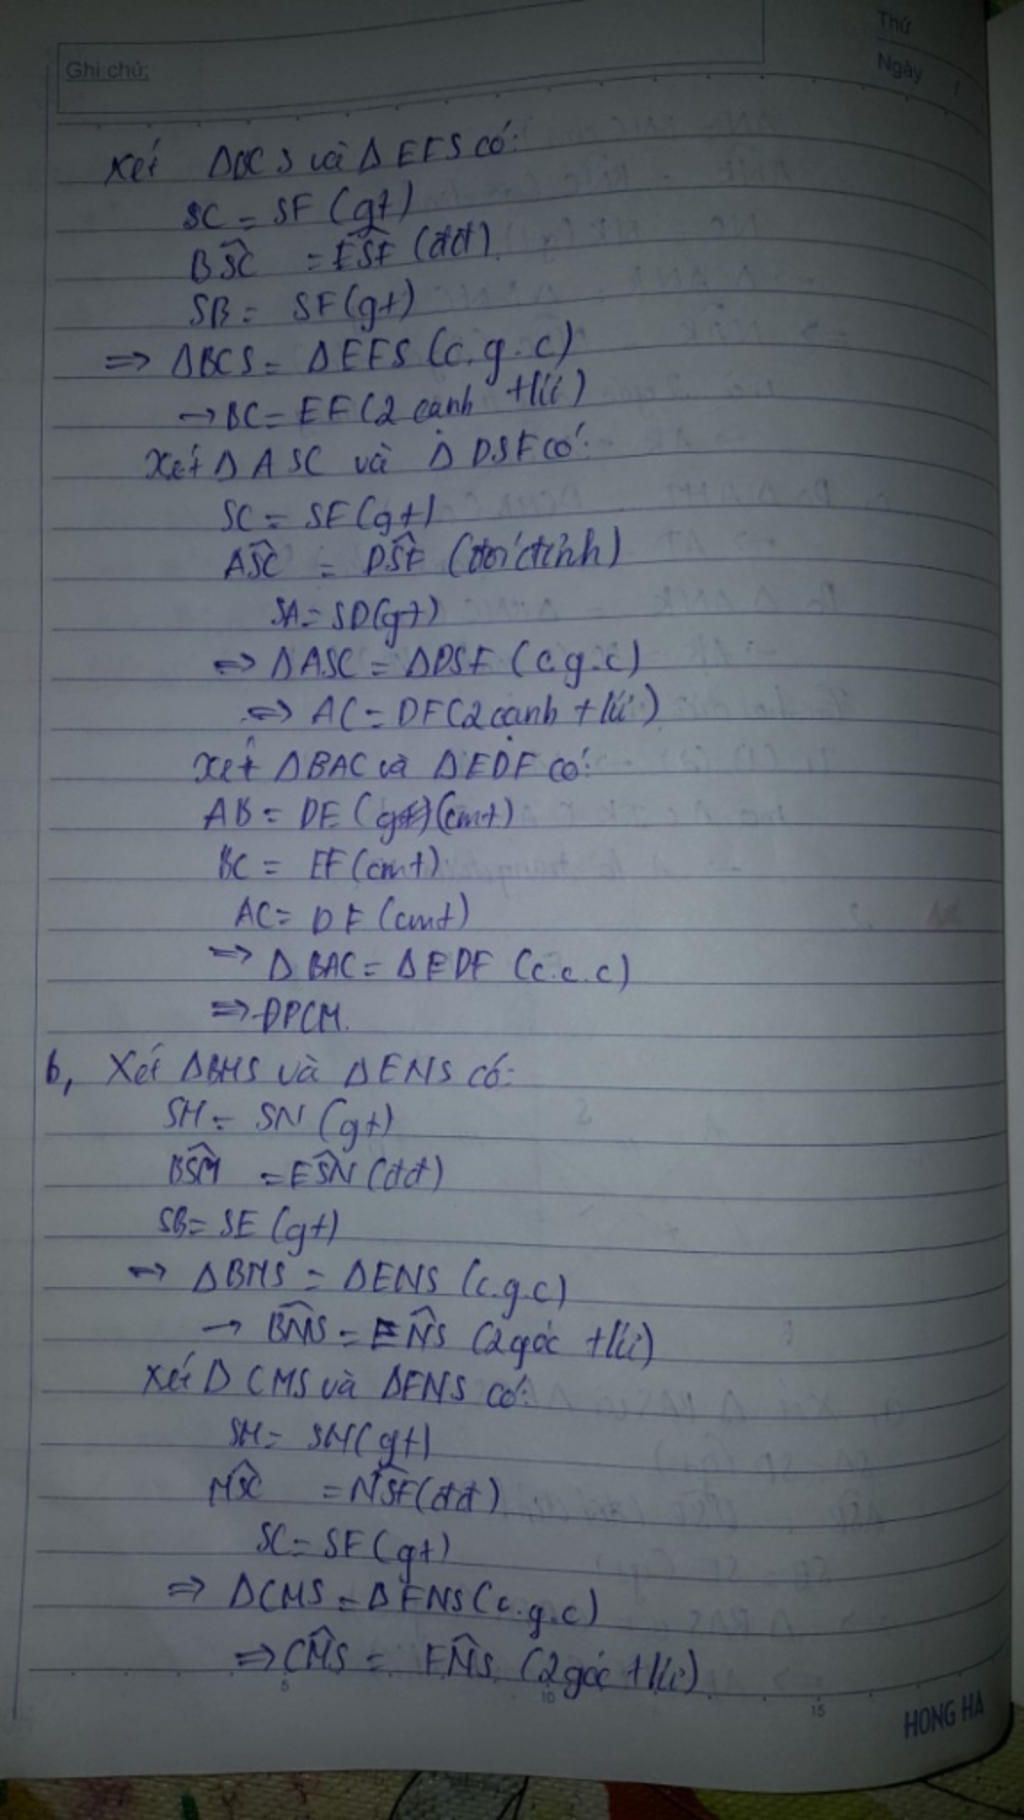 Ghi chú:
Thứ
Ngày /
Xét ΔBCS và ΔEFS có:
SC = SF (gt)
BŜC = EŜF (đđ)
SB = SF (gt)
=> ΔBCS = ΔEFS (c.g.c)
→ BC = EF (2 cạnh tlứ)
Xét ΔASC và ΔDSF có:
SC = SF (gt)
AŜC = DŜF (đối đỉnh)
SA = SD (gt)
=> ΔASC = ΔDSF (c.g.c)
=> AC = DF (2 cạnh tlứ)
Xét ΔBAC và ΔEDF có:
AB = DE (cmt)
BC = EF (cmt)
AC = DF (cmt)
=> ΔBAC = ΔEDF (c.c.c)
=> ĐPCM.
b, Xét ΔBMS và ΔENS có:
SM = SN (gt)
BŜM = EŜN (đđ)
SB = SE (gt)
=> ΔBMS = ΔENS (c.g.c)
→ BM̂S = EN̂S (2 góc tlứ)
Xét Δ CMS và ΔFNS có:
SM = SN (gt)
MŜC = NŜF (đđ)
SC = SF (gt)
=> ΔCMS = ΔFNS (c.g.c)
=> CM̂S = FN̂S (2 góc tlứ)
5 10 15
HONG HA